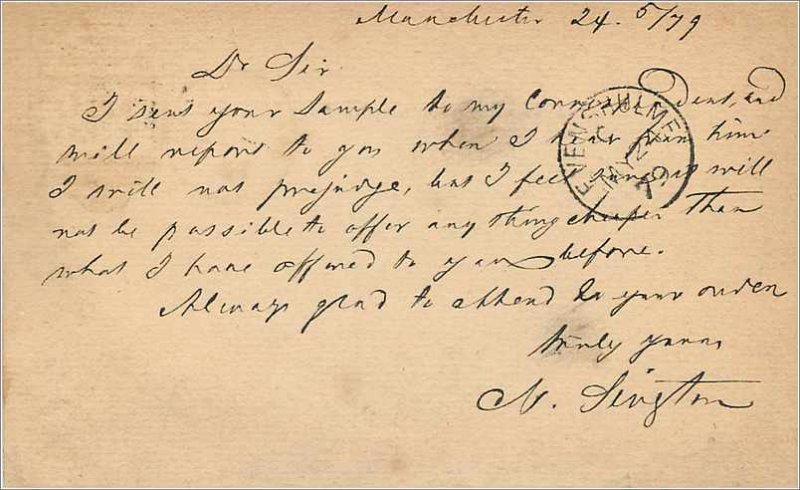 Manchester 24. 5/79
Dr Sir
I sent your Sample to my Correspondent, and
will report to you when I hear from him
I will not prejudge, but I feel sure it will
not be possible to offer any thing cheaper than
what I have offered to you before.
Always glad to attend to your orders
truly yours
N. Sington